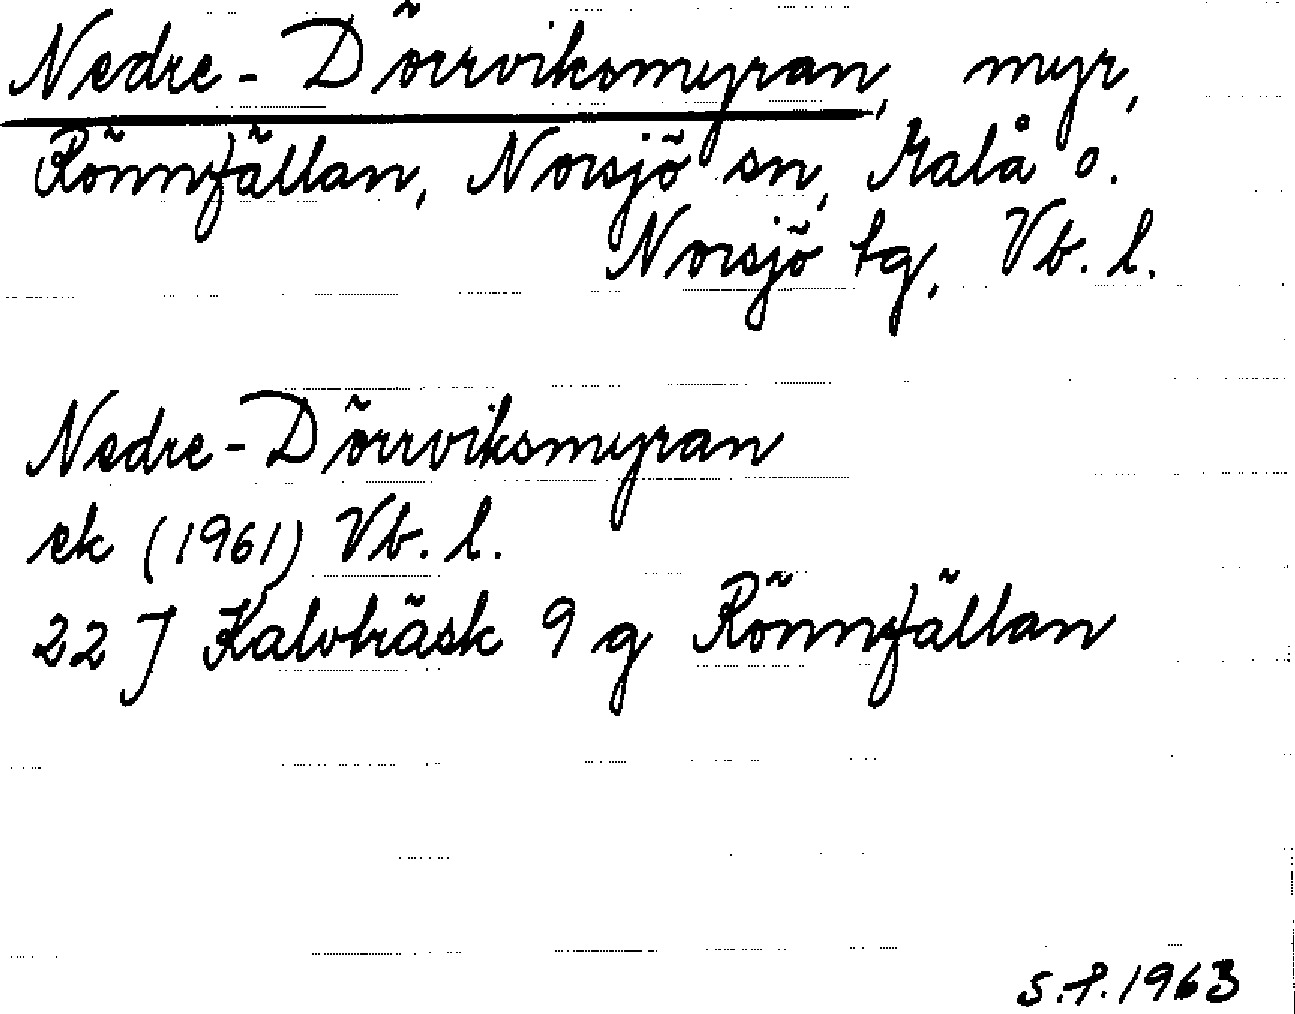 Nedre-Dörrviksmyran, myr,
Rönnfällan, Norsjö sn, Malå o.
Norsjö tg, Vb. l.
Nedre-Dörrviksmyran
ek (1961) Vb. l.
22 J Kalvträsk 9 g Rönnfällan
S.F. 1963